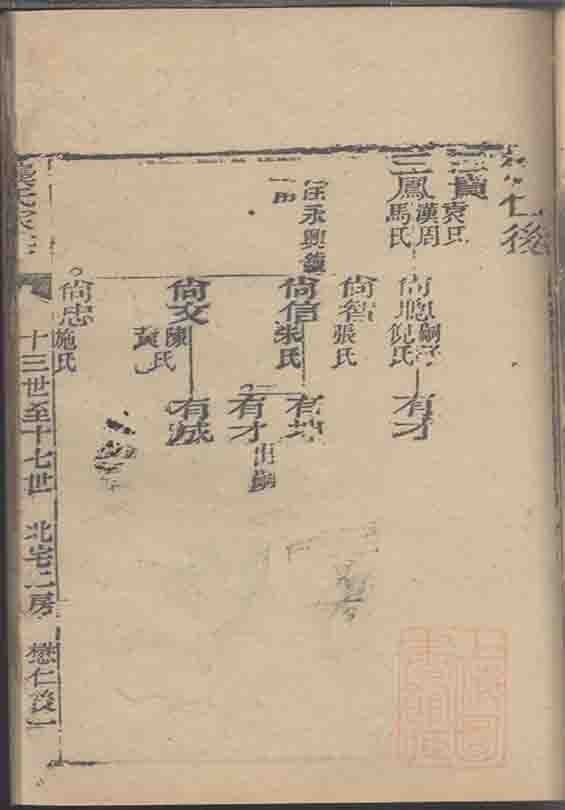 仁後
三鳳
袁氏
漢周
馬氏
尚聰
嗣子
倪氏
有才
尚智
張氏
尚信
朱氏
有地
有才
出嗣
尚文
陳氏
黃氏
有誠
尚忠
施氏
十三世至十七世 北宅二房 懋仁後一